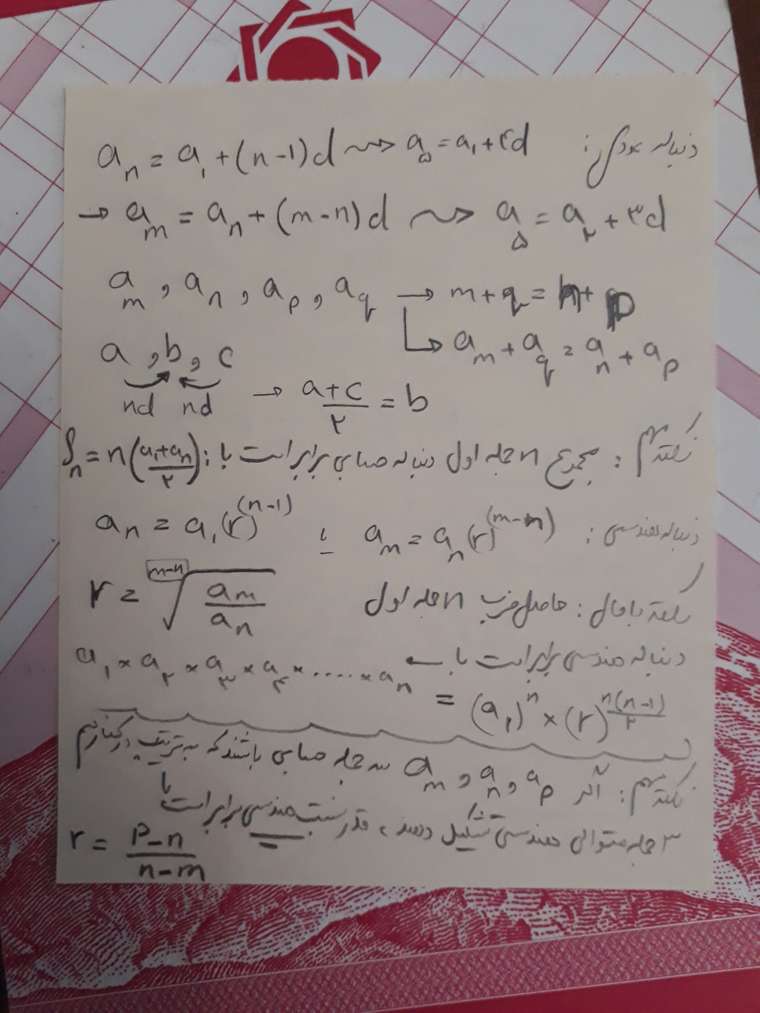 دنباله عددی: aₙ = a₁ + (n-1)d ⇝ a₅ = a₁ + ۴d
→ aₘ = aₙ + (m-n)d ⇝ a₅ = a₂ + ۳d
aₘ , aₙ , aₚ , a_q → m+q = n+p
↳ aₘ + a_q = aₙ + aₚ
a , b , c
nd nd → (a+c)/۲ = b
نکته مهم: مجموع n جمله اول دنباله حسابی برابر است با: Sₙ = n((a₁+aₙ)/۲)
دنباله هندسی: aₙ = a₁(r)^(n-1) یا aₘ = aₙ(r)^(m-n)
r = ᵐ⁻ⁿ√(aₘ/aₙ)
نکته باحال: حاصل ضرب n جمله اول
دنباله هندسی برابر است با ← a₁ × a₂ × a₃ × a₄ × ..... × aₙ
= (a₁)ⁿ × (r)^(n(n-1)/۲)
نکته مهم: اگر aₘ , aₙ , aₚ سه جمله حسابی باشند که به ترتیب در کنار هم
۳ جمله متوالی هندسی تشکیل دهند، قدر نسبت هندسی برابر است با
r = (p-n)/(n-m)